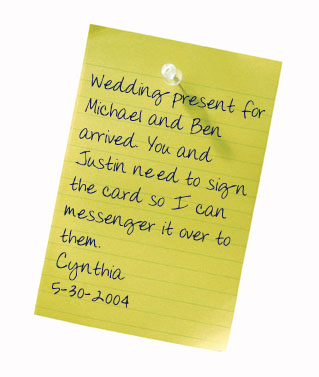 Wedding present for
Michael and Ben
arrived. You and
Justin need to sign
the card so I can
messenger it over to
them.
Cynthia
5-30-2004